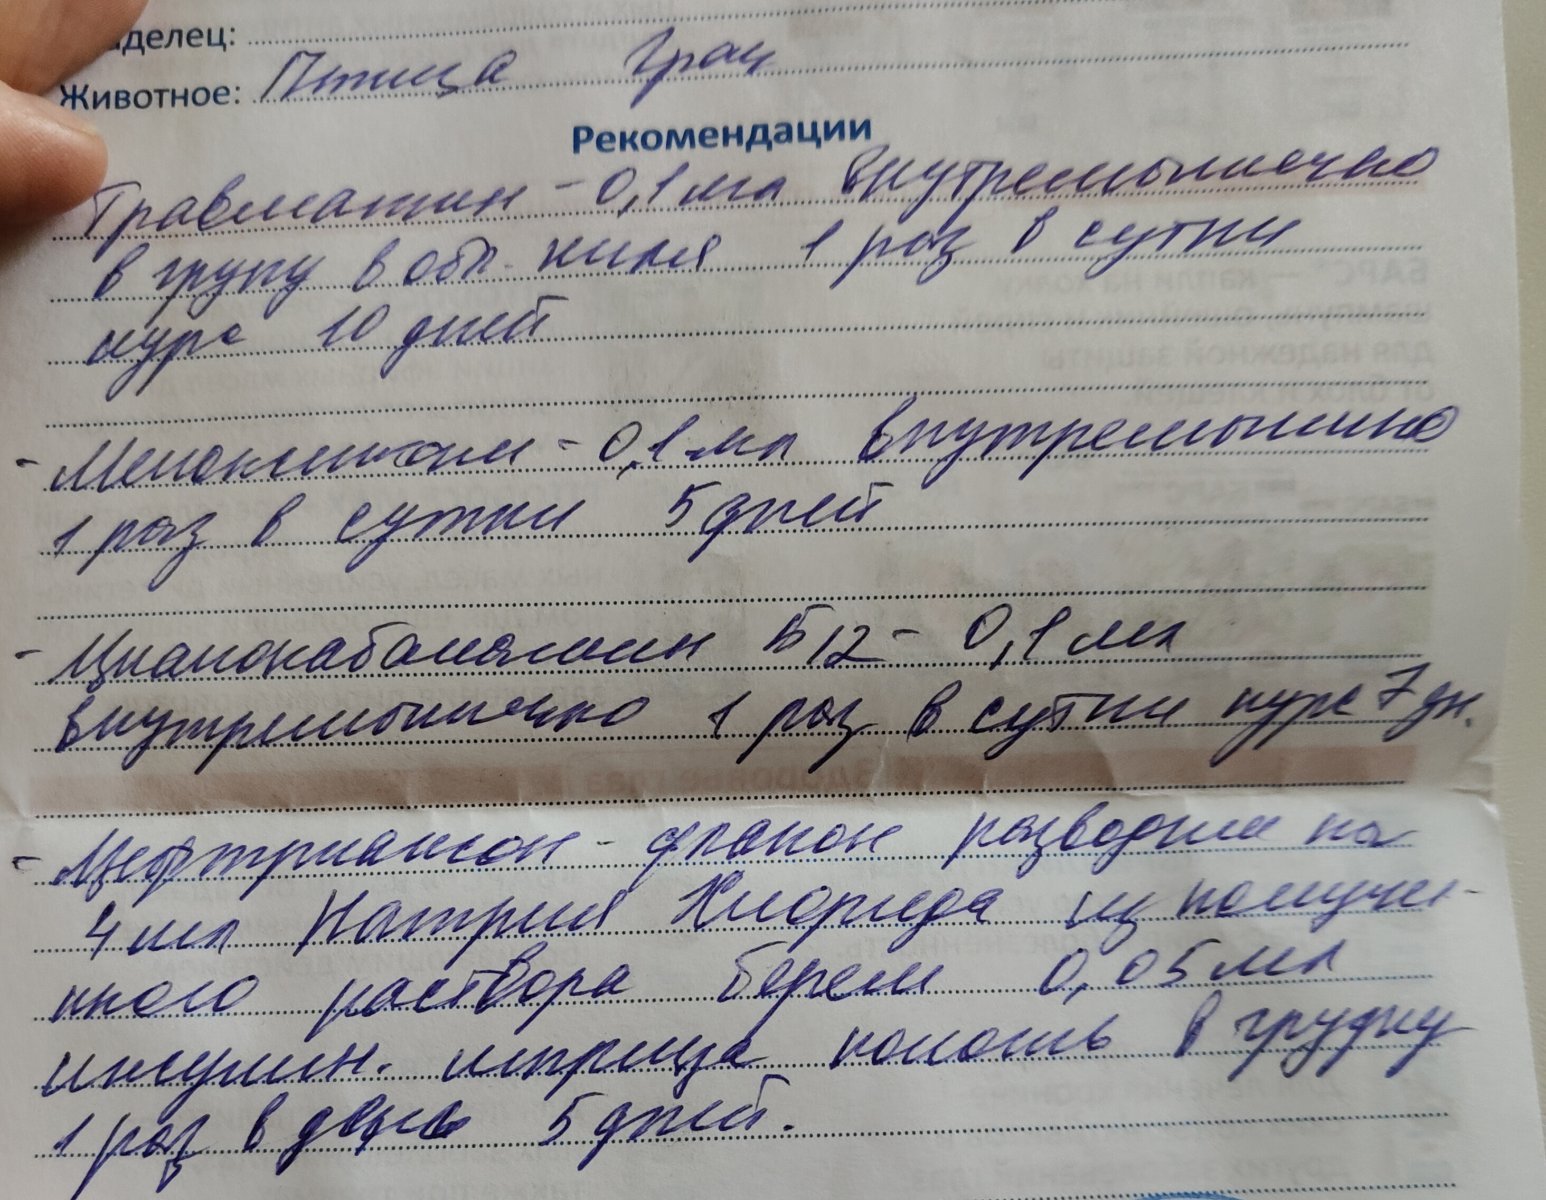 аделец:
Животное: Птица Грач
Рекомендации
Травматин - 0,1 мл внутремышечно
в груду в обл. киля 1 раз в сутки
курс 10 дней
- Мелоксикам - 0,1 мл внутремышчно
1 раз в сутки 5 дней
- Цианокабаламин Б12 - 0,1 мл
внутремышечно 1 раз в сутки курс 7 дн.
- Цефтриаксон - флакон разводим на
4 мл Натрия Хлорида из получен-
нного раствора берем 0,05 мл
инсулин. шприца колоть в грудку
1 раз в день 5 дней.